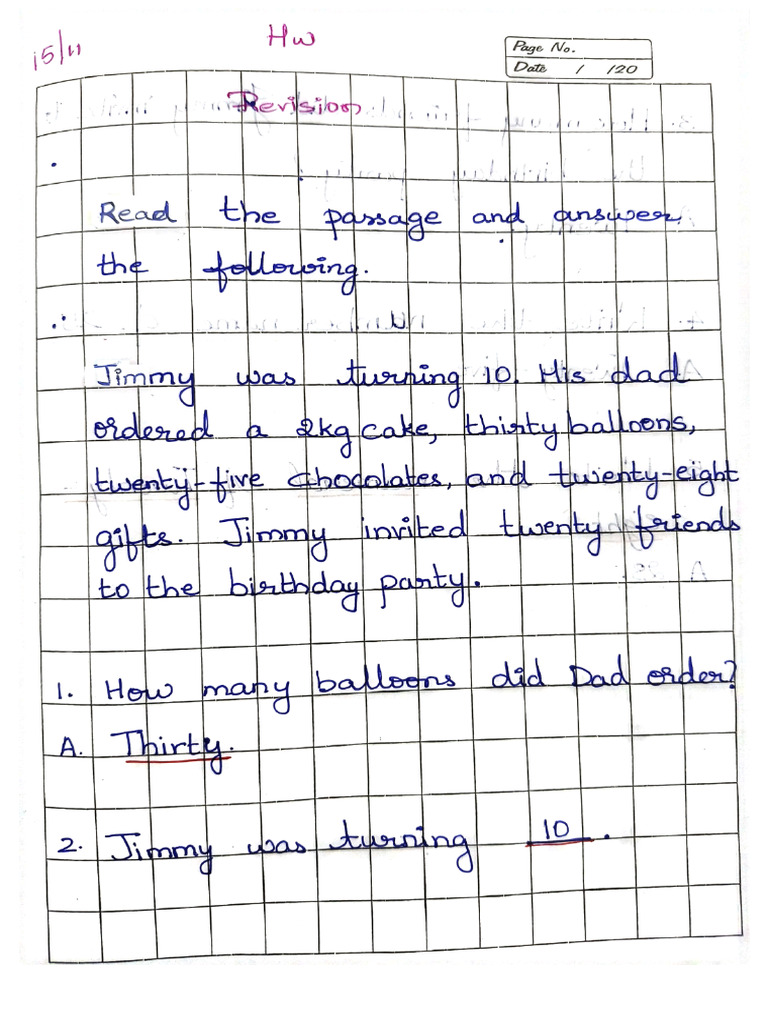 15/11
HW
Page No.
Date / /20
Revision
Read the passage and answer
the following.
Jimmy was turning 10. His dad
ordered a 2kg cake, thirty balloons,
twenty-five chocolates, and twenty-eight
gifts. Jimmy invited twenty friends
to the birthday party.
1. How many balloons did Dad order?
A. Thirty.
2. Jimmy was turning 10.